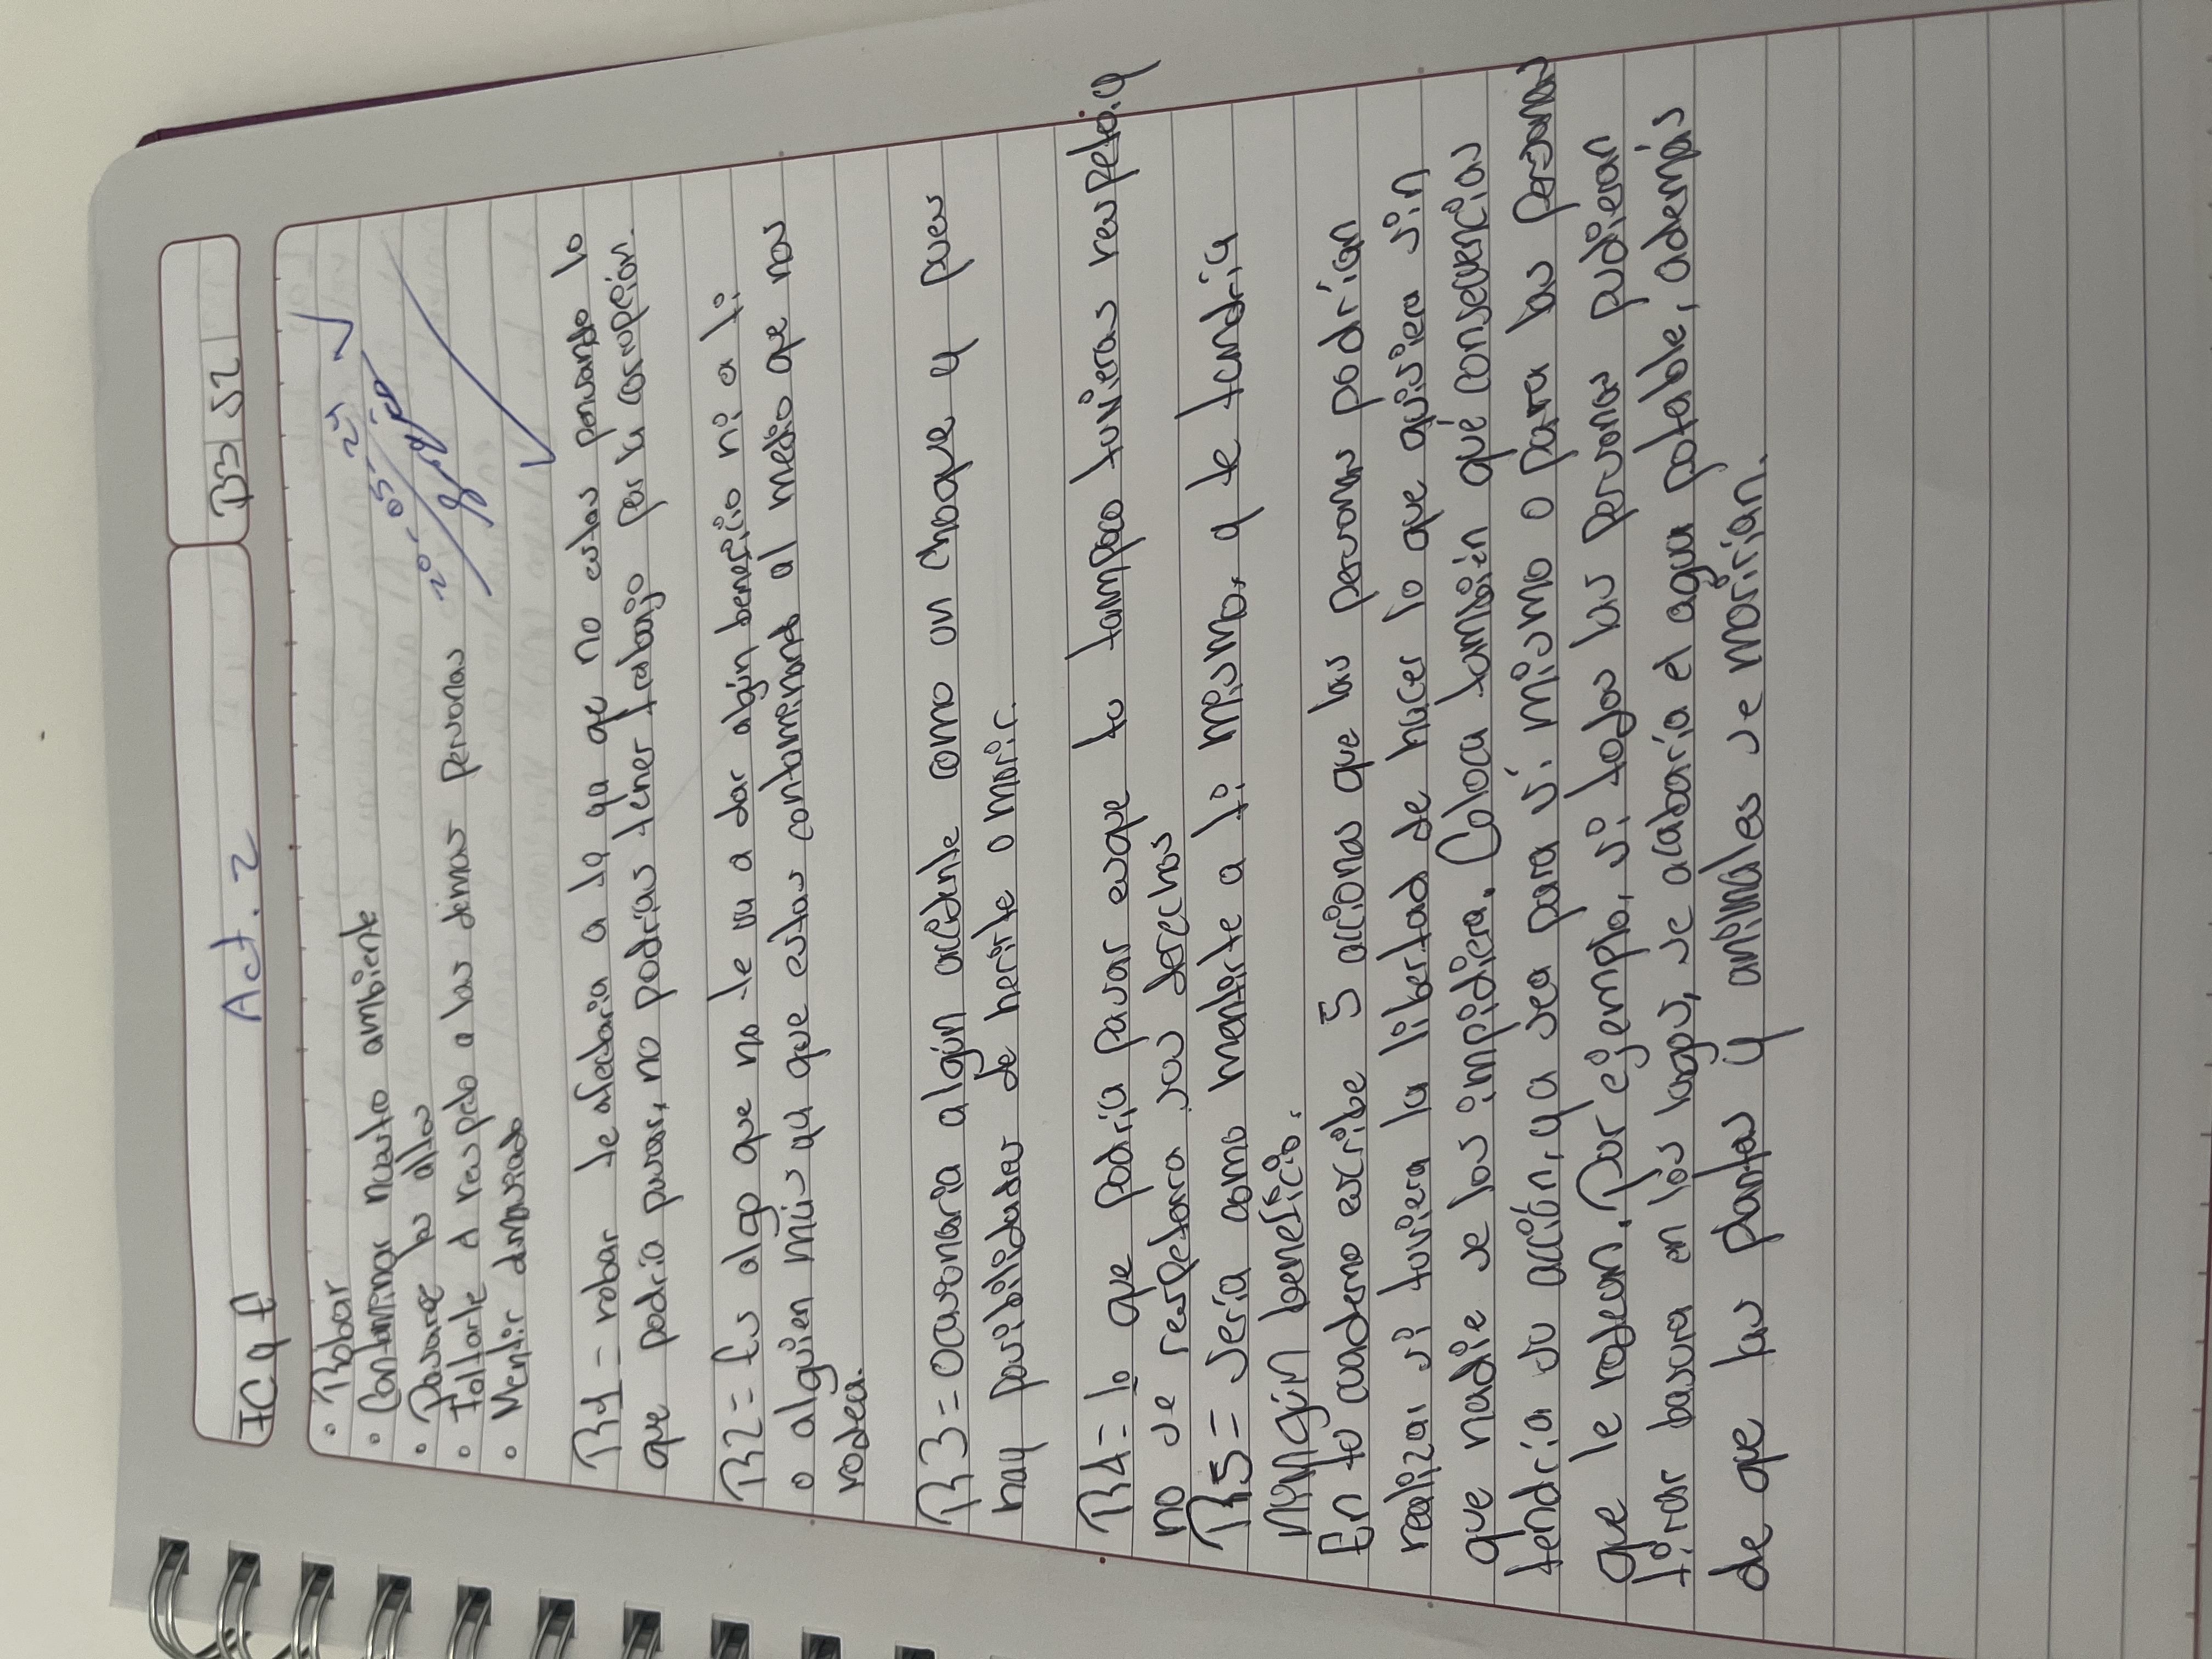 FC y E
Act. 2
B3 S2
• Robar
• Contaminar nuestro ambiente
• Pasarse los altos
• Faltarle el respeto a las demas personas
• Mentir demasiado
20-05-25
R1= robar te afectaria a ti ya que no estas pensando lo
que podria pasar, no podrias tener trabajo por la corrupción.
R2= Es algo que no te va a dar algún beneficio ni a ti
o alguien más ya que estas contaminando al medio que nos
rodea.
R3= ocasonaria algún accidente como un choque y pues
hay posibilidades de herirte o morir.
R4= lo que podría pasar es que tu tampoco tuvieras respeto y
no se respetara sus derechos
R5= sería como mentirte a ti mismo, y te tundria
ningún beneficio.
En tu cuaderno escribe 5 acciones que las personas podrían
realizar si tuviera la libertad de hacer lo que quisiera sin
que nadie se los impidiera. Coloca también qué consecuencias
tendría su acción, ya sea para sí mismo o para las personas
que le rodean. Por ejemplo, si todas las personas pudieran
tirar basura en los lagos, se acabaría el agua potable, además
de que las plantas y animales se morirían.